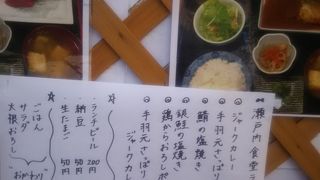 瀬戸内食堂ラ
◎ジャークカレー
◎手羽元さっぱり
◎鯖の塩焼き
◎銀鮭の塩焼き
◎鶏からおろしポ
◎手羽元さっぱり
ジャークカレ
☆
・ランチビール 200円
・納豆 50円
・生たまご 50円
☆
ごはん
サラダ
大根おろし
おかわり